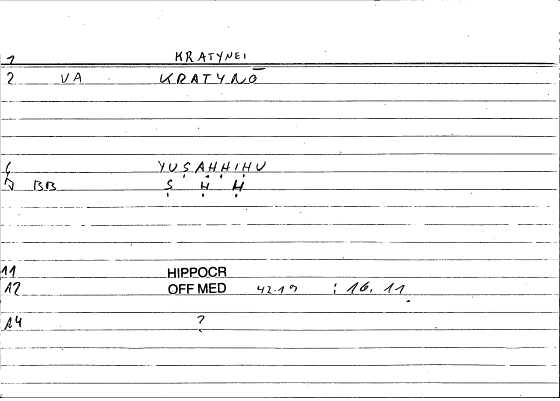 1 KRATYNEI
2 VA KRATYNŌ
6 YUṢAḤḤIḤU
7 BB Ṣ Ḥ Ḥ
11 HIPPOCR
12 OFF MED 42.19 ; 16, 11
14 ?